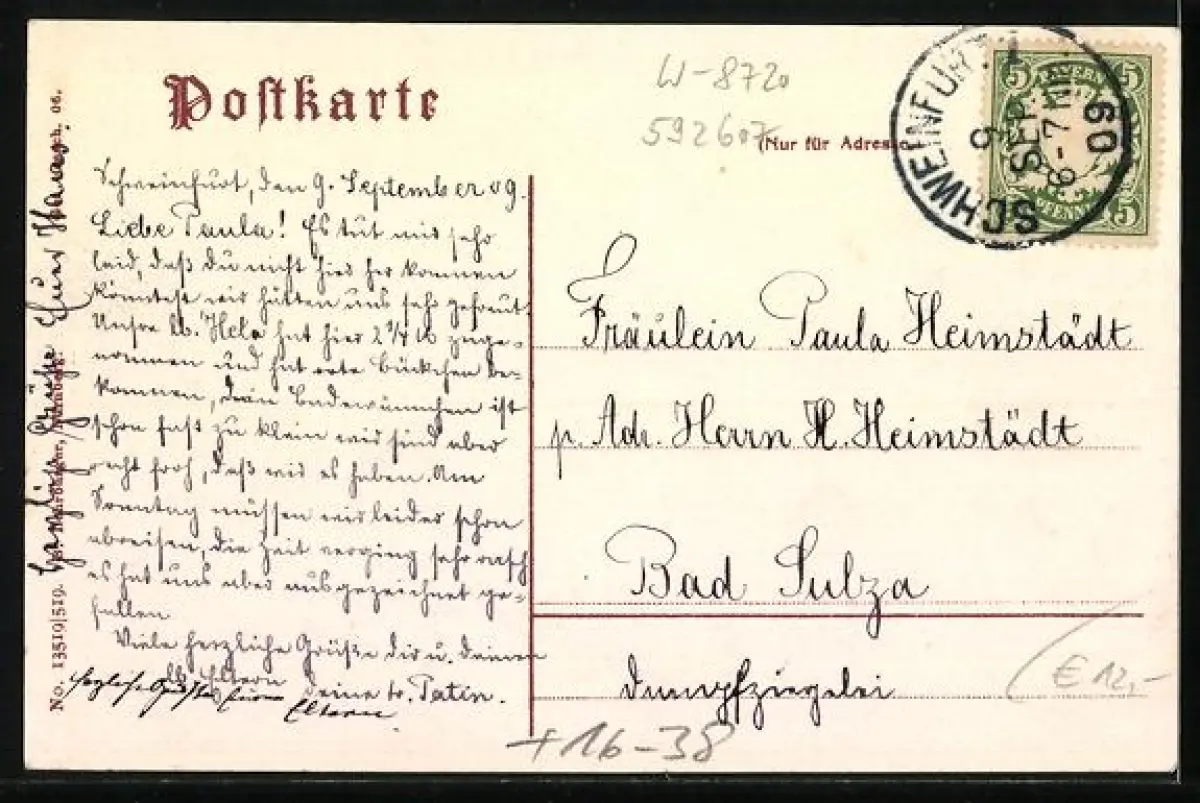 Postkarte
W-8720
592607
(Nur für Adresse
SCHWEINFURT
9 SEP.
6-7 NM.
09
5 BAYERN 5
PFENNIG 5
Schweinfurt, den 9. September 09.
Liebe Paula! Es tut mir sehr
leid, daß du nicht hier her kommen
konntest wir hätten uns sehr gefreut.
Unsre lb. Hela hat hier 2 3/4 zuge-
nommen und hat rote Bäckchen be-
kommen, dein Badewännchen ist
schon fast zu klein wir sind aber
recht froh, daß wir es haben. Am
Sonntag müssen wir leider schon
abreisen, die Zeit verging sehr rasch
es hat uns aber ausgezeichnet ge-
fallen
Viele herzliche Grüße dir u. deinen
lb. Eltern deine tr. Patin.
Herzliche Grüße Eltern
Herzliche Grüße Euer
No. 13519/519. Nürnberg. 06.
Fräulein Paula Heimstädt
p. Adr. Herrn H. Heimstädt
Bad Sulza
Dampfziegelei
€ 12,-
+16-38